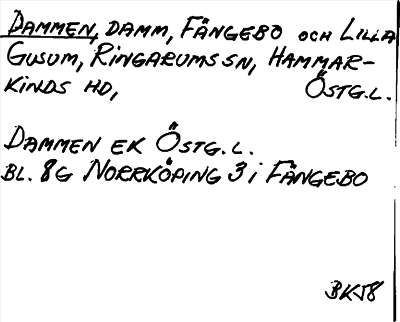 DAMMEN, DAMM, FÄNGEBO OCH LILLA
GUSUM, RINGARUMS SN, HAMMAR-
KINDS HD, ÖSTG.L.
DAMMEN EK ÖSTG.L.
BL. 8G NORRKÖPING 3 i FÄNGEBO
BK58